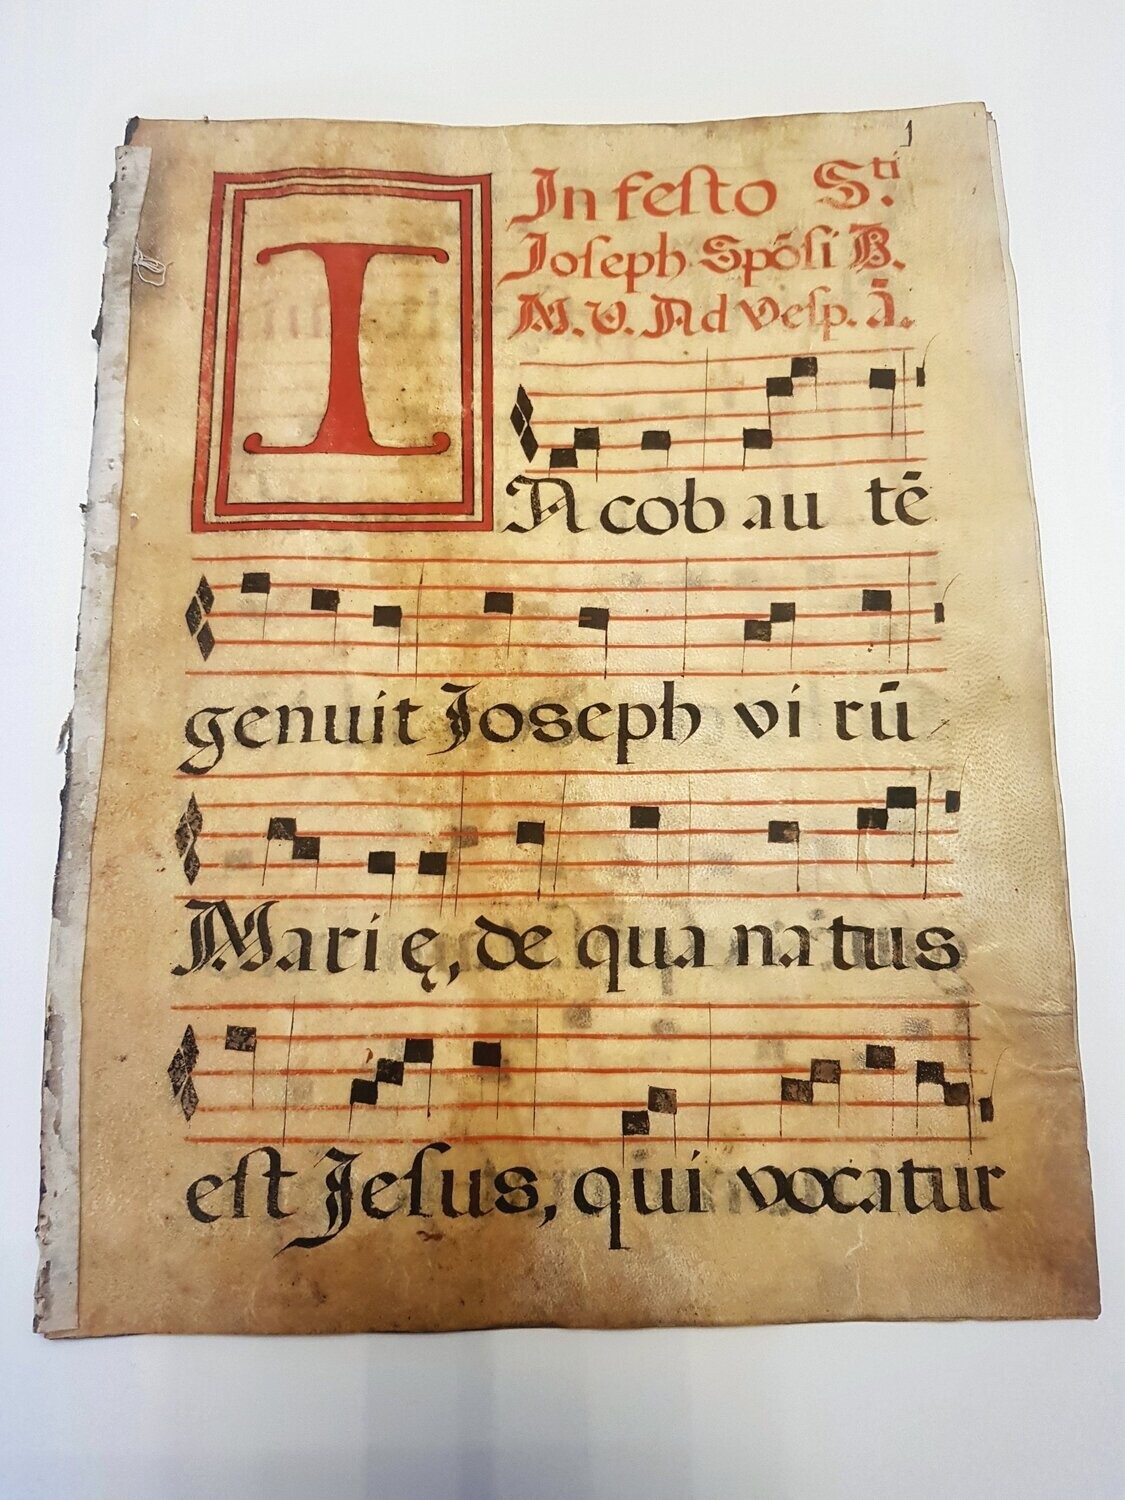 1
In festo S.ti
Joseph Spõsi B.
M. V. Ad Vesp. ā.
I
Acob au tē
genuit Joseph vi rū
Mari ę, de qua natus
est Jesus, qui vocatur